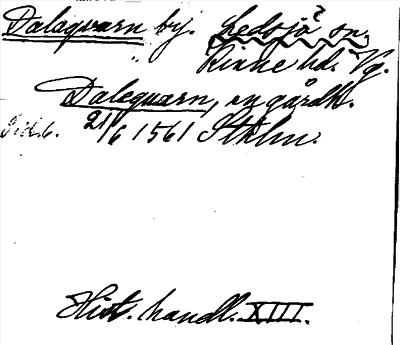 Dalaqvarn by. Ledsjö? sn.
Kinne hd. Vg.
Dalequarn, en gårdh.
21/6 1561 Sthlm.
Hist. handl. XIII.